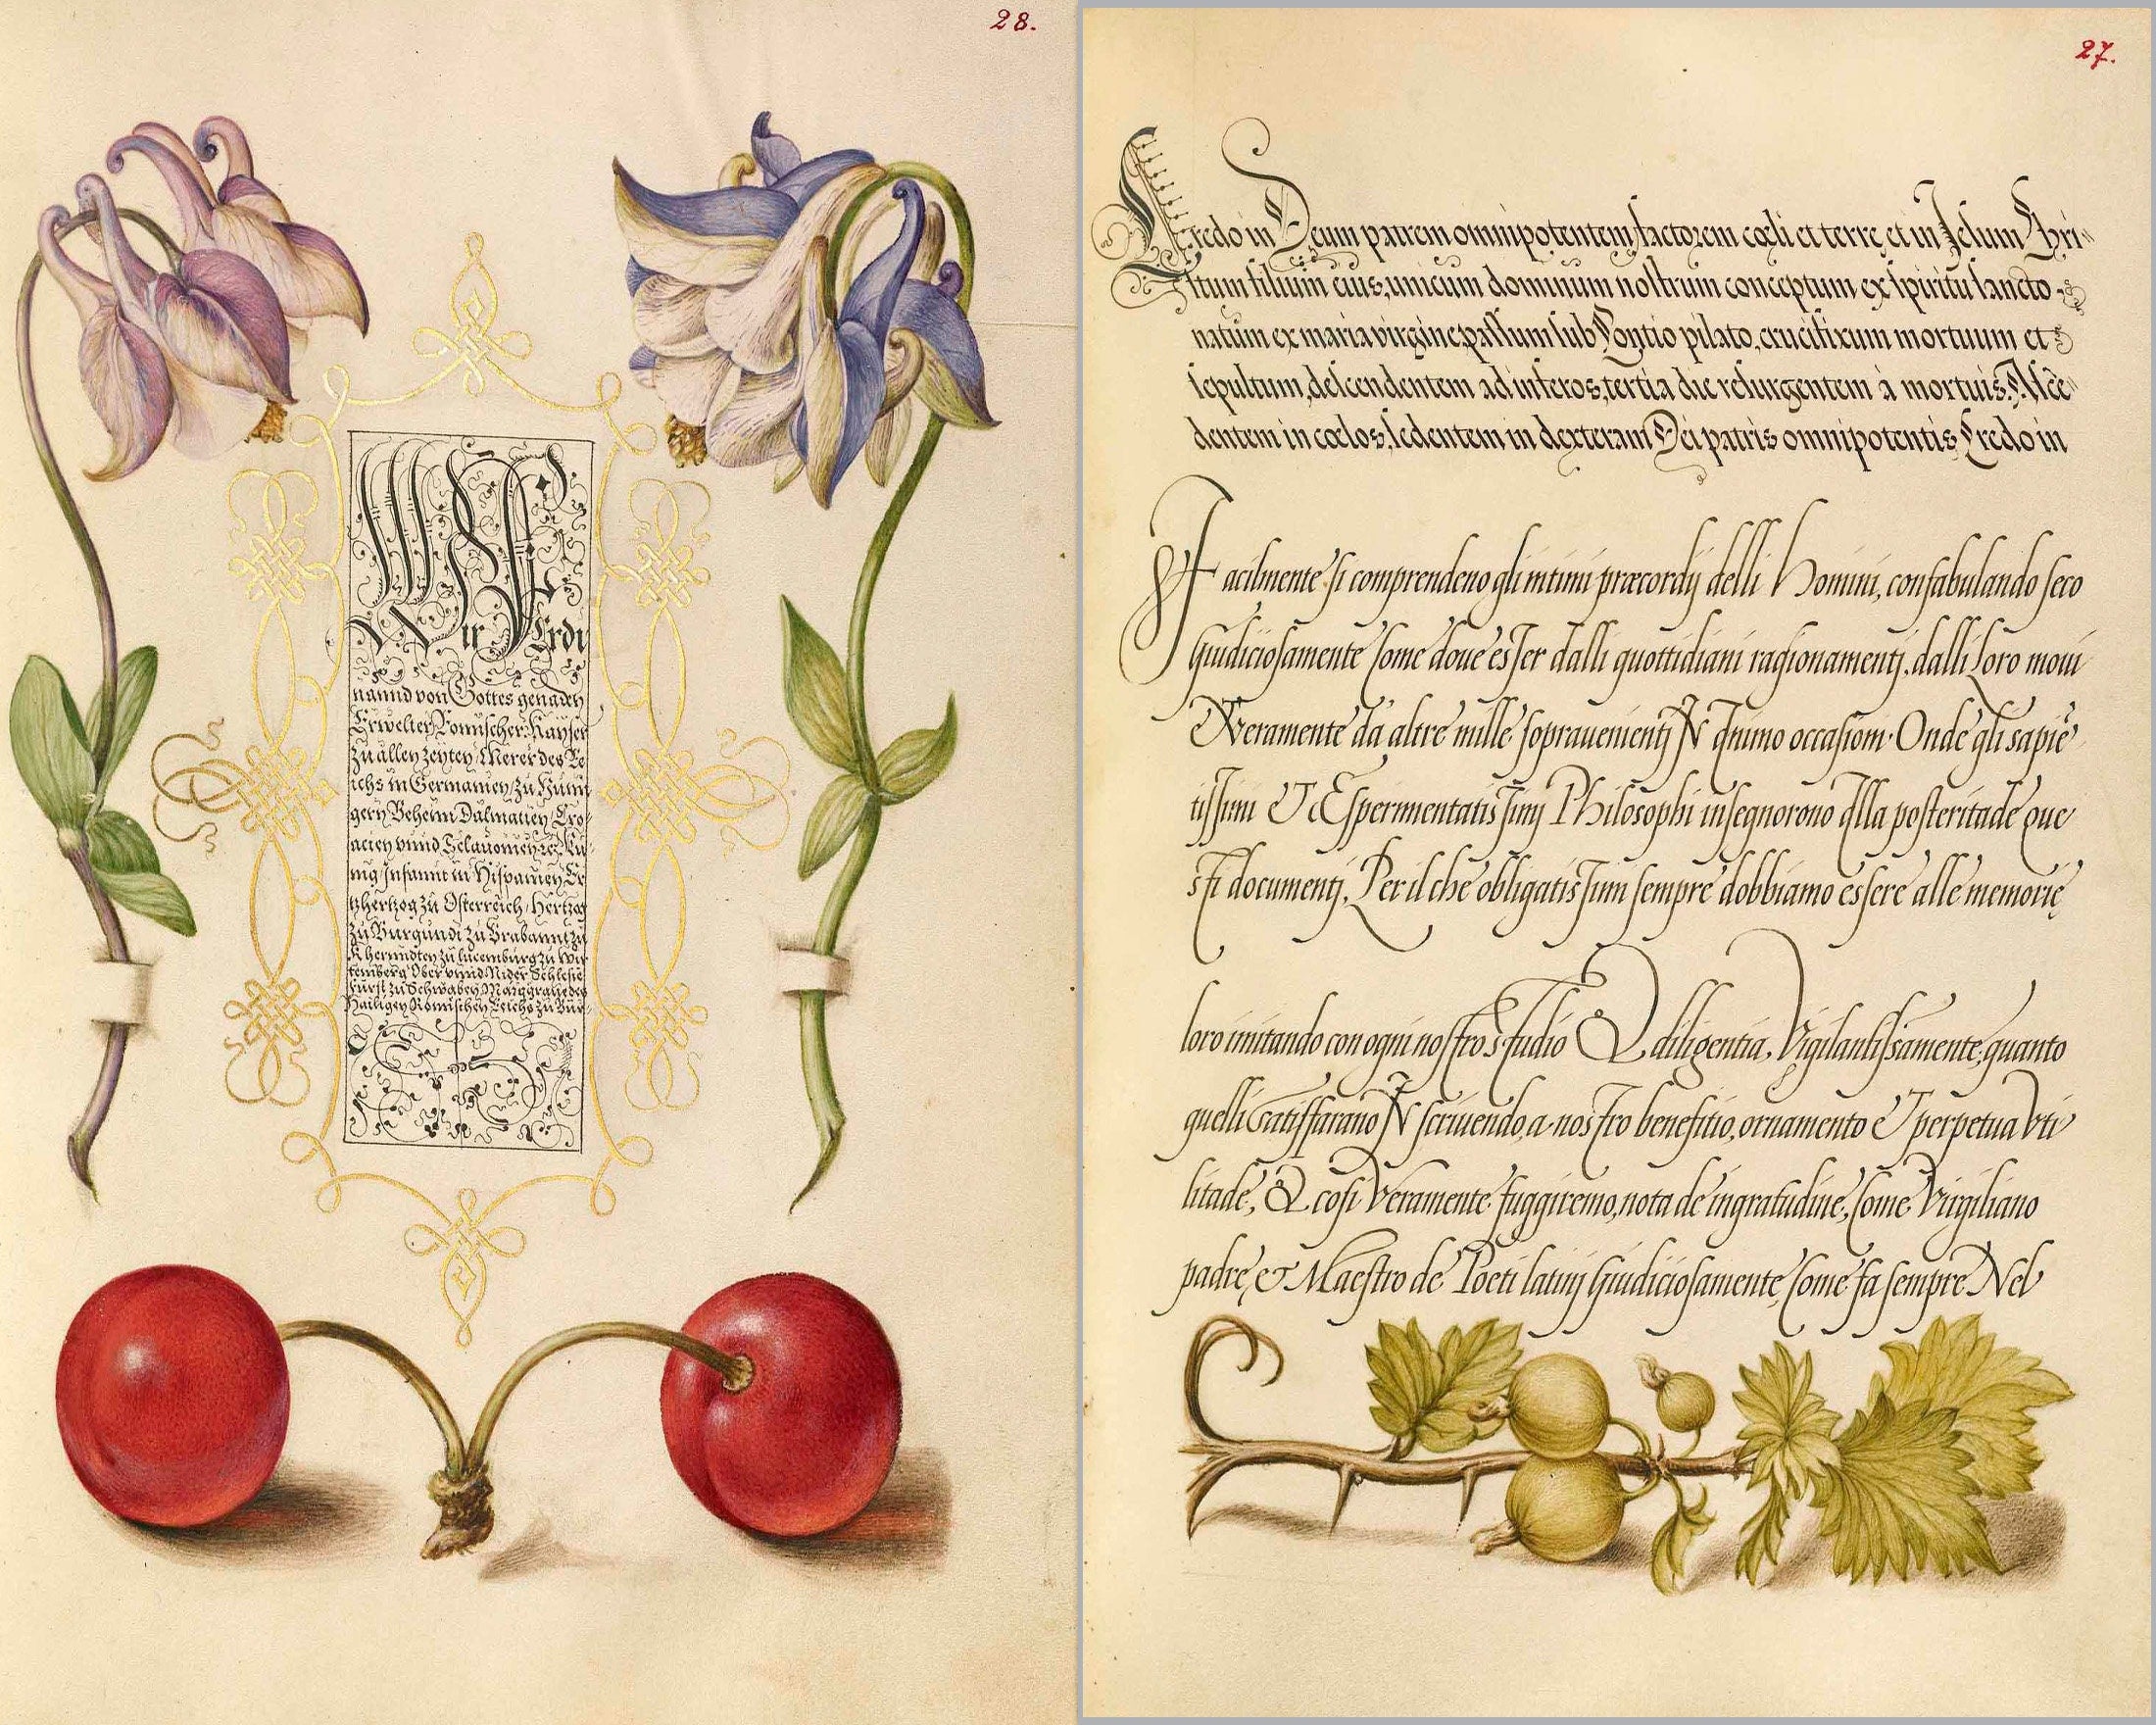 28.
Wir Ferdi
nannd von Gottes genaden
Erwelter Romischer Kayser
zu allen zeyten Merer des Re
ichs in Germanien zu Hunn
gern Beheim Dalmatien Cro
acien vnnd Sclauonien &c Ku
nig Infannt in Hispanien Er
tzhertzog zu Osterreich Hertzog
zu Burgundi zu Brabannt zu
Kherndten zu Lucemburg zu Wir
temberg Ober vnnd Nider Schlesie
Furst zu Schwaben Marggraue des
Hailigen Romischen Reichs zu Bur
27.
Credo in Deum patrem omnipotentem, factorem cœli et terrę et in Jesum Chri
stum filium eius, unicum dominum nostrum conceptum ex spiritu sancto
natum ex maria virgine, passum sub Pontio pilato, crucifixum mortuum et
sepultum, descendentem ad inferos, tertia die resurgentem à mortuis. Asce
dentem in cœlos, sedentem in dexteram Dei patris omnipotentis, Credo in
Facilmente si comprendeno gli intimi præcordij delli Homini, confabulando seco
Giudiciosamente Come doue esser dalli quottidiani ragionamentj, dalli Loro moui
Veramente da altre mille soprauenientj IN animo occasioni. Onde gli sapiē
tissimi ET Esperimentatissimj Philosophi insegnorono Alla posteritade que
sti documentj, Per il che obligatissimi sempre dobbiamo essere alle memorię
loro imitando con ogni nostro Studio & diligentia, Vigilantissamente, quanto
quelli Satisffarano IN scriuendo, a nostro benefitio, ornamento ET perpetua Vti
litade, & cosi Veramente fuggiremo, nota de ingratudine, Come Virgiliano
padre, & Maestro de Poeti latinj Giudiciosamente, Come fa sempre Nel